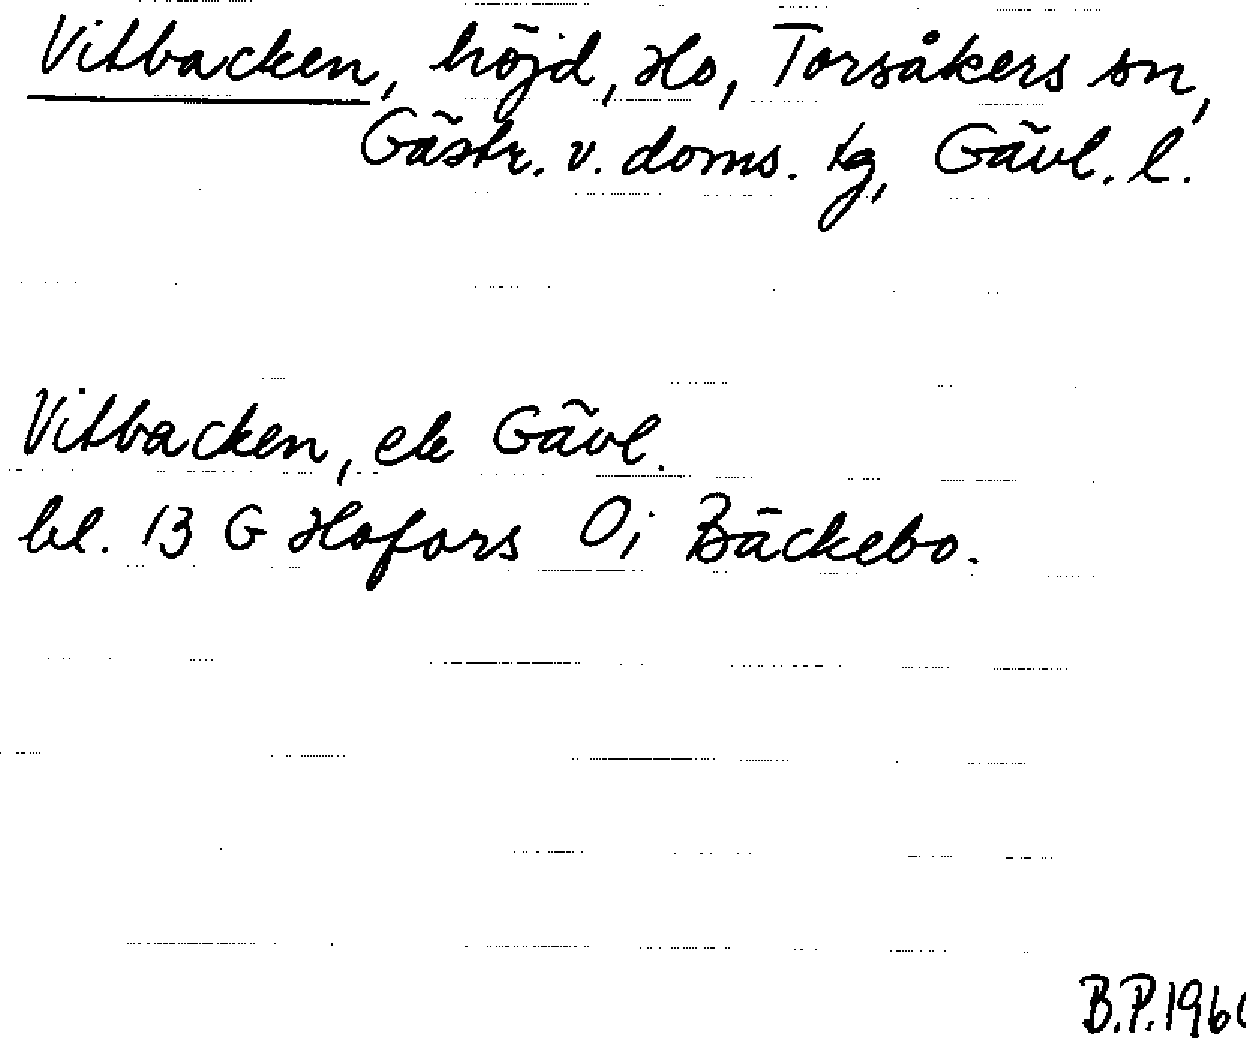 Vitbacken, höjd, Ho, Torsåkers sn,
Gästr. v. doms. tg, Gävl. l.
Vitbacken, ek Gävl.
bl. 13 G Hofors O; Bäckebo.
B.P.196